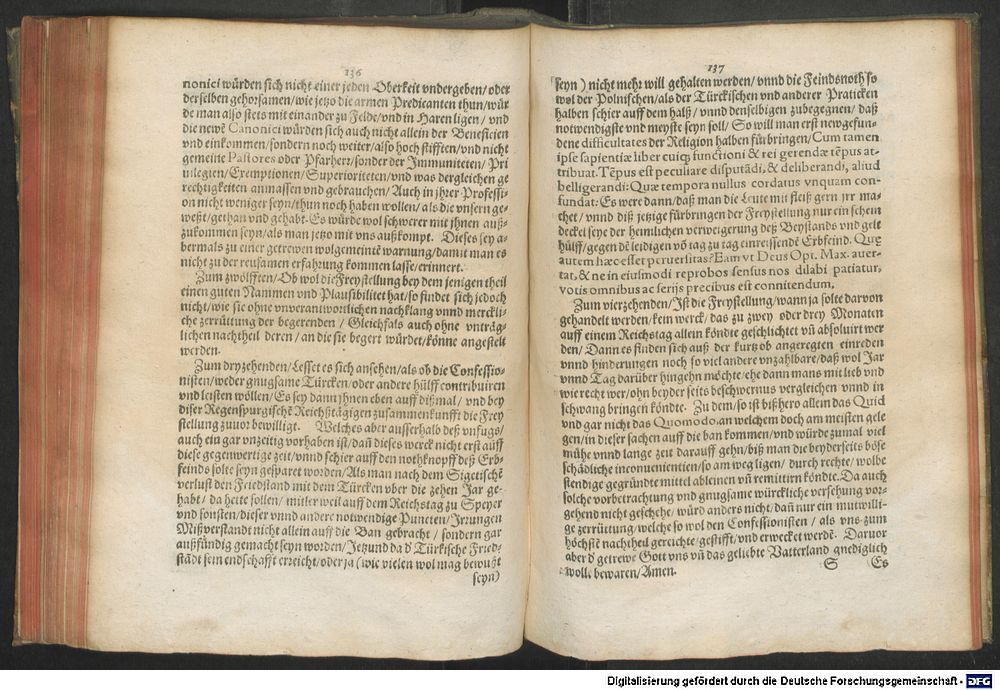 136
nonici würden sich nicht einer jeden Oberkeit vndergeben/ oder
derselben gehorsamen/ wie jetzo die armen Predicanten thun/ wür
de man also stets mit einander zu Felde/ vnd in Haren ligen/ vnd
die newē Canonici würden sich auch nicht allein der Beneficien
vnd einkommen/ sondern noch weiter/ also hoch stifften/ vnd nicht
gemeine Pastores oder Pfarherꝛ/ sonder der Immuniteten/ Pri
uilegien/ Exemptionen/ Superioriteten/ vnd was dergleichen ge
rechtigkeiten anmassen vnd gebrauchen/ Auch in jhrer Professi-
on nicht weniger seyn/ thun noch haben wollen/ als die vnsern ge-
weßt/ gethan vnd gehabt. Es würde wol schwerer mit jhnen auß-
zukommen seyn/ als man jetzo mit vns außkompt. Dieses sey a-
bermals zu einer getrewen wolgemeintē warnung/ damit man es
nicht zu der reusamen erfahrung kommen lasse/ erinnert.
Zum zwölfften/ Ob wol die Freystellung bey dem jenigen theil
einen guten Nammen vnd Plausibilitet hat/ so findet sich jedoch
nicht/ wie sie ohne vnuerantwortlichen nachklang vnnd merckli-
che zerrüttung der begerenden/ Gleichfals auch ohne vnträg-
lichen nachtheil deren/ an die sie begert würdet/ könne angestelt
werden.
Zum dryzehenden/ Lesset es sich ansehen/ als ob die Confessio-
nisten/ weder gnugsame Türcken/ oder andere hülff contribuiren
vnd leisten wöllen/ Es sey dann jhnen eben auff dißmal/ vnd bey
diser Regenspurgischē Reichßtägigen zusammenkunfft: die Frey
stellung zuuor bewilligt. Welches aber ausserhalb deß vnfugs/
auch ein gar vnzeitig vorhaben ist/ dañ dieses werck nicht erst auff
diese gegenwertige zeit/ vnnd schier auff den nothknopff deß Erb-
feinds solte seyn gesparet worden/ Als man nach dem Sigetischē
verlust den Friedstand mit dem Türcken vber die zehen Jar ge-
habt/ da hette sollen/ mitler weil auff dem Reichstag zu Speyer
vnd sonsten/ dieser vnnd andere notwendige Puncten/ Irrungen
Mißverstandt nicht allein auff die Ban gebracht/ sondern gar
außfündig gemacht seyn worden/ Jetzund da d' Türkische Fried-
städt sein endschafft erreicht/ oder ja (wie vielen wol mag bewußt
seyn)
137
seyn) nicht mehr will gehalten werden/ vnnd die Feindsnoth so
wol der Polnischen/ als der Türckischen vnd anderer Praticken
halben schier auff dem halß/ vnnd denselbigen zubegegnen/ daß
notwendigste vnd meyste seyn soll/ So will man erst newgefun-
dene difficultates der Religion halben fürbringen/ Cum tamen
ipse sapientiæ liber cuiq; functioni & rei gerendæ tēpus at-
tribuat. Tēpus est peculiare disputādi, & deliberandi, aliud
belligerandi: Quæ tempora nullus cordatus vnquam con-
fundat: Es were dann/ daß man die Leute mit fleiß gern jrr ma-
chet/ vnnd diß jetzige fürbringen der Freystellung nur ein schein
deckel seye der heimlichen verweigerung deß Beystands vnd gelt
hülff/ gegen dē leidigen võ tag zu tag einreissendē Erbfeind. Quę
autem hæc esset peruersitas? Eam vt Deus Opt. Max. auer-
tat, & ne in eiusmodi reprobos sensus nos dilabi patiatur,
votis omnibus ac serijs precibus est connitendum.
Zum vierzehenden/ Ist die Freystellung/ wann ja solte darvon
gehandelt werden/ kein werck/ das zu zwey oder drey Monaten
auff einem Reichstag allein köndte geschlichtet vñ absoluirt wer
den/ Dann es finden sich auß der kurtz ob angeregten einreden
vnnd hinderungen noch so viel andere vnzahlbare/ daß wol Jar
vnnd Tag darüber hingehn möchte/ ehe dann mans mit lieb vnd
wie recht wer/ ohn beyder seits beschwernus vergleichen vnnd in
schwang bringen köndte. Zu dem/ so ist bißhero allein das Quid
vnd gar nicht das Quomodo, an welchem doch am meisten gele
gen/ in dieser sachen auff die ban kommen/ vnd würde zumal viel
mühe vnnd lange zeit darauff gehn/ biß man die beyderseits böse
schädliche inconuenientien/ so am weg ligen/ durch rechte/ wolbe
stendige gegründte mittel ableinen vñ remittirn köndte. Da auch
solche vorbetrachtung vnd gnugsame würckliche versehung vor-
gehend nicht geschehe/ würd anders nicht/ dañ nur ein mutwilli-
ge zerrüttung/ welche so wol den Confessionisten/ als vns zum
höchstē nachtheil gereichte/ gestifft/ vnd erwecket werdē. Daruor
aber d' getrewe Gott vns vñ das geliebte Vatterland gnediglich
wolle bewaren/ Amen.
S Es
Digitalisierung gefördert durch die Deutsche Forschungsgemeinschaft - DFG